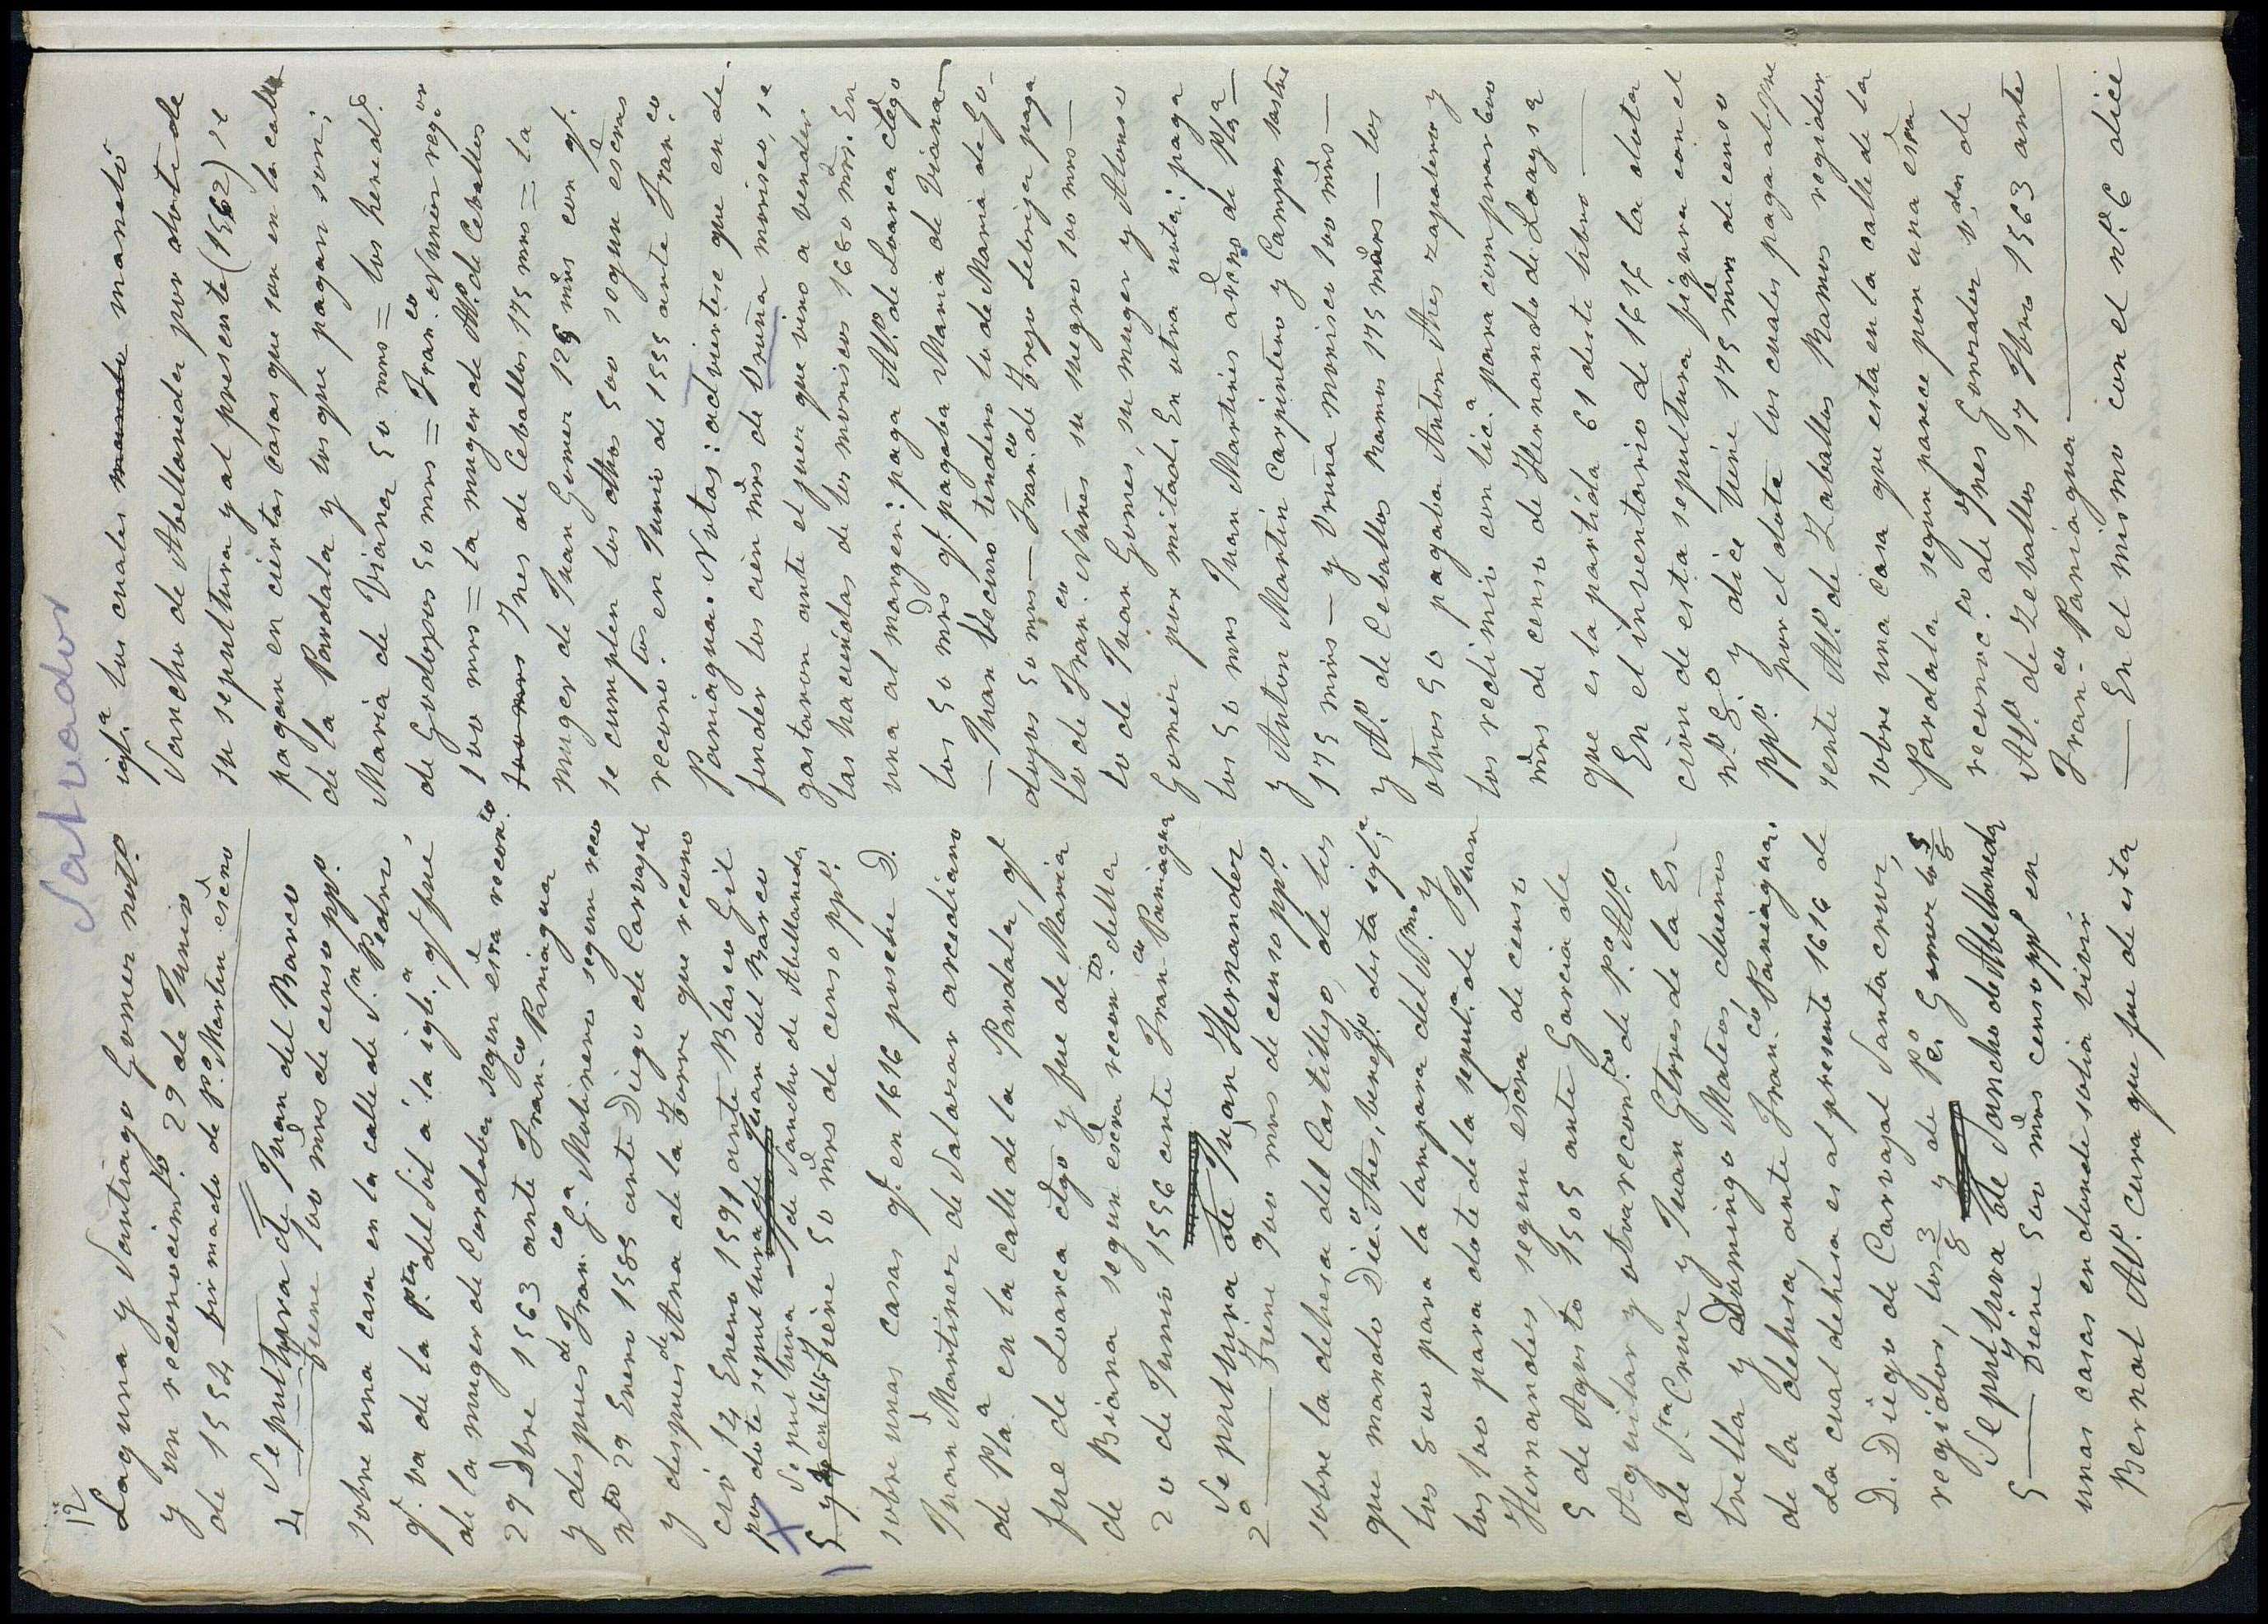 Salvador
12
Laguna y Santiago Gomez not.º
y un reconocim.to 29 de Junio
de 1554 firmado de P.º Martin escno
4 Sepultura de Juan del Barco
Tiene 100 mrs de censo pp.º
sobre una casa en la calle de S.n Pedro
q.e va de la p.ta del Sol á la igl.a, q.e fué
de la muger de Cordoba segun esra recon.to
29 Dbre 1563 ante Fran.co Paniagua
y despues de Fran.co G.a Molinero segun reco
n.to 29 Enero 1585 ante Diego de Carvajal
y despues de Ana de la Torre que recono
ció 14 Enero 1591 ante Blasco Gil
por dote sepultura de Juan del Barco
Sepultura de Sancho de Abellaneda
5 y en 1616 Tiene 50 mrs de censo pp.º
sobre unas casas q.e en 1616 poséhe D.
Juan Martinez de Salazar arcediano
de Pla.a en la calle de la Pardala, q.e
fue de Loarca cl̃go y fue de Maria
de Biana segun escra recon.to della
20 de Junio 1556 ante Fran.co Paniagua
Sepultura de Juan Hernandez
2º Tiene 700 mrs de censo pp.º
sobre la dehesa del Castillejo, de los
que mandó Die.º Ares, benef.do desta igl.a;
los 500 para la lampara del S.mo y
los 100 para dote de la sepul.a de Juan
Hernandez, segun escra de censo
5 de Agosto 1505 ante Garcia de
Aguilar y otra recon.to de P.º Al.º
de S.ta Cruz y Juan Gtres de la Es
trella y Domingo Mateos, dueños
de la dehesa, ante Fran.co Paniagua.
La cual dehesa es al presente 1616 de
D. Diego de Carvajal Santacruz,
regidor, los 3/8 y de P.º Gomez lo 5/8
Sepultura de Sancho de Abellaneda
5 Tiene 500 mrs censo pp.º en
unas casas en donde solia vivir
Bernal Al.º cura que fue de esta
igl.a los cuales mando mandó
Sancho de Abellaneda por dote de
su sepultura y al presente (1562) se
pagan en ciertas casas que son en la calle
de la Pardala y los que pagan son;
Maria de Viana 50 mrs = los hered.s
de Godopos 50 mrs = Fran.co Nunez reg.or
100 mrs = la muger de Al.º de Ceballos
100 mrs Ines de Ceballos 175 mrs = la
muger de Juan Gomez 125 mrs con q.e
se cumplen los dhos 500 segun escras
recono.tos en Junio de 1555 ante Fran.co
Paniagua. Notas: adviertese que en de
fender los cien mrs de Oruña morisco, se
gastaron ante el juez que vino a vender
las haciendas de los moriscos 1660 mrs. En
una al margen: paga Al.º de Loarca cl̃ego
los 50 mrs q.e pagaba Maria de Viana
— Juan Becino tendero lo de Maria de Go-
dojos 50 mrs — Fran.co de Trejo Lebrija paga
lo de Fran.co Nuñes su suegro 100 mrs —
lo de Juan Gomes, su muger y Alonso
Gomez por mitad. En otra nota: paga
los 50 mrs Juan Martines arcno de Pla.a —
y Anton Martin carpintero y Campos sastre
175 mrs — y Oruña morisco 100 mrs —
y Al.º de Ceballos Ramos 175 mrs — los
otros 50 pagaba Anton Ares zapatero y
los redimio con lic.a para comprar 600
mrs de censo de Hernando de Loaysa
que es la partida 61 deste libro —
En el inventario de 1616 la dota
cion de esta sepultura figura con el
n.º 5.º y dice tiene 175 mrs de censo
pp.º por el dote los cuales paga al pre
sente Al.º de Zaballos Ramos regidor
sobre una casa que esta en la calle de la
Pardala segun parece por una esra
reconoc.to de Ynes Gonzalez v.da de
Al.º de Zevallos 17 7bro 1563 ante
Fran.co Paniagua —
— En el mismo con el n.º 6 dice